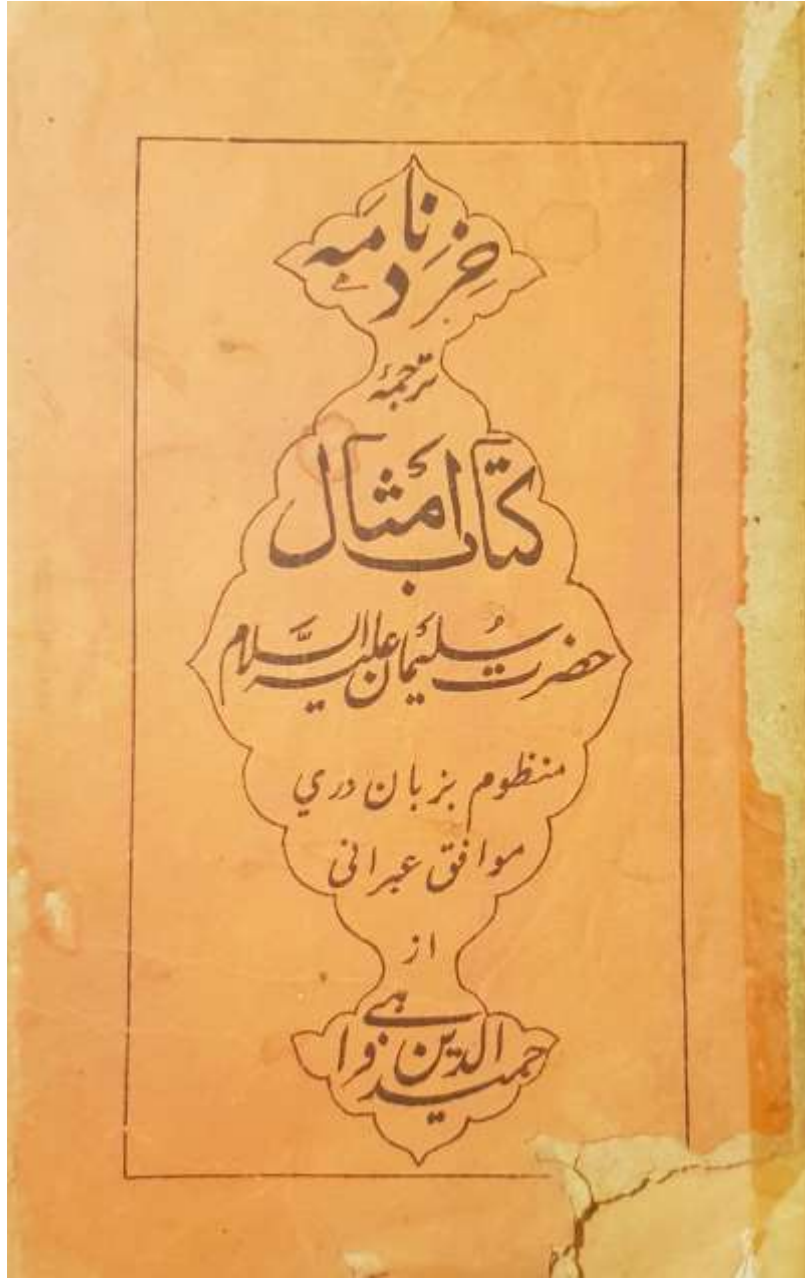 خِرَد نامَہ
ترجمۂ
کتَاب اَمثال
حضرت سُلیمَان علیہ السَّلام
منظوم بزبان دري
موافق عبرانی
از
حمید الدین فراہی